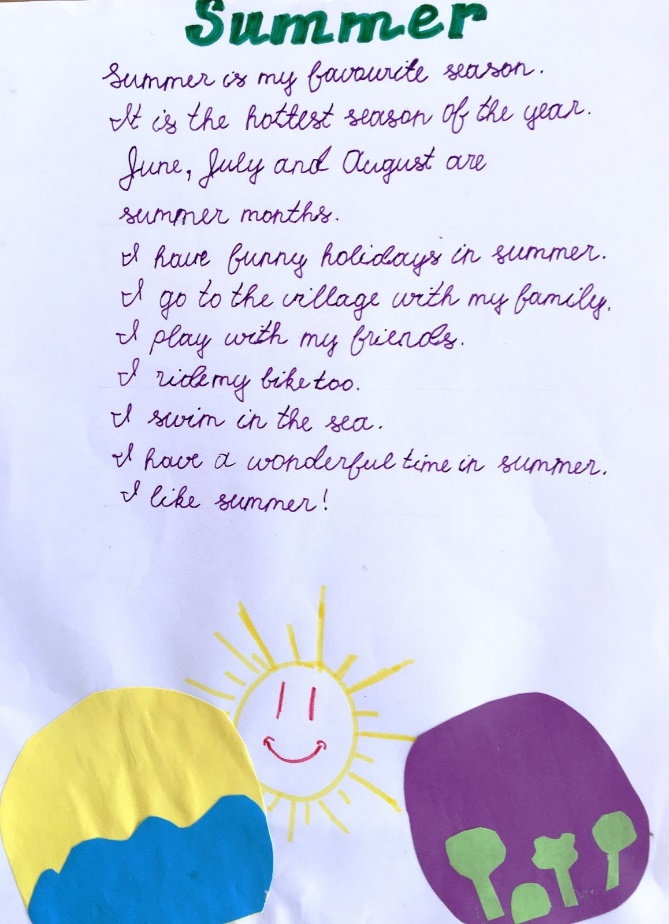 Summer
Summer is my favourite season.
It is the hottest season of the year.
June, July and August are
summer months.
I have funny holidays in summer.
I go to the village with my family.
I play with my friends.
I ride my bike too.
I swim in the sea.
I have a wonderful time in summer.
I like summer!